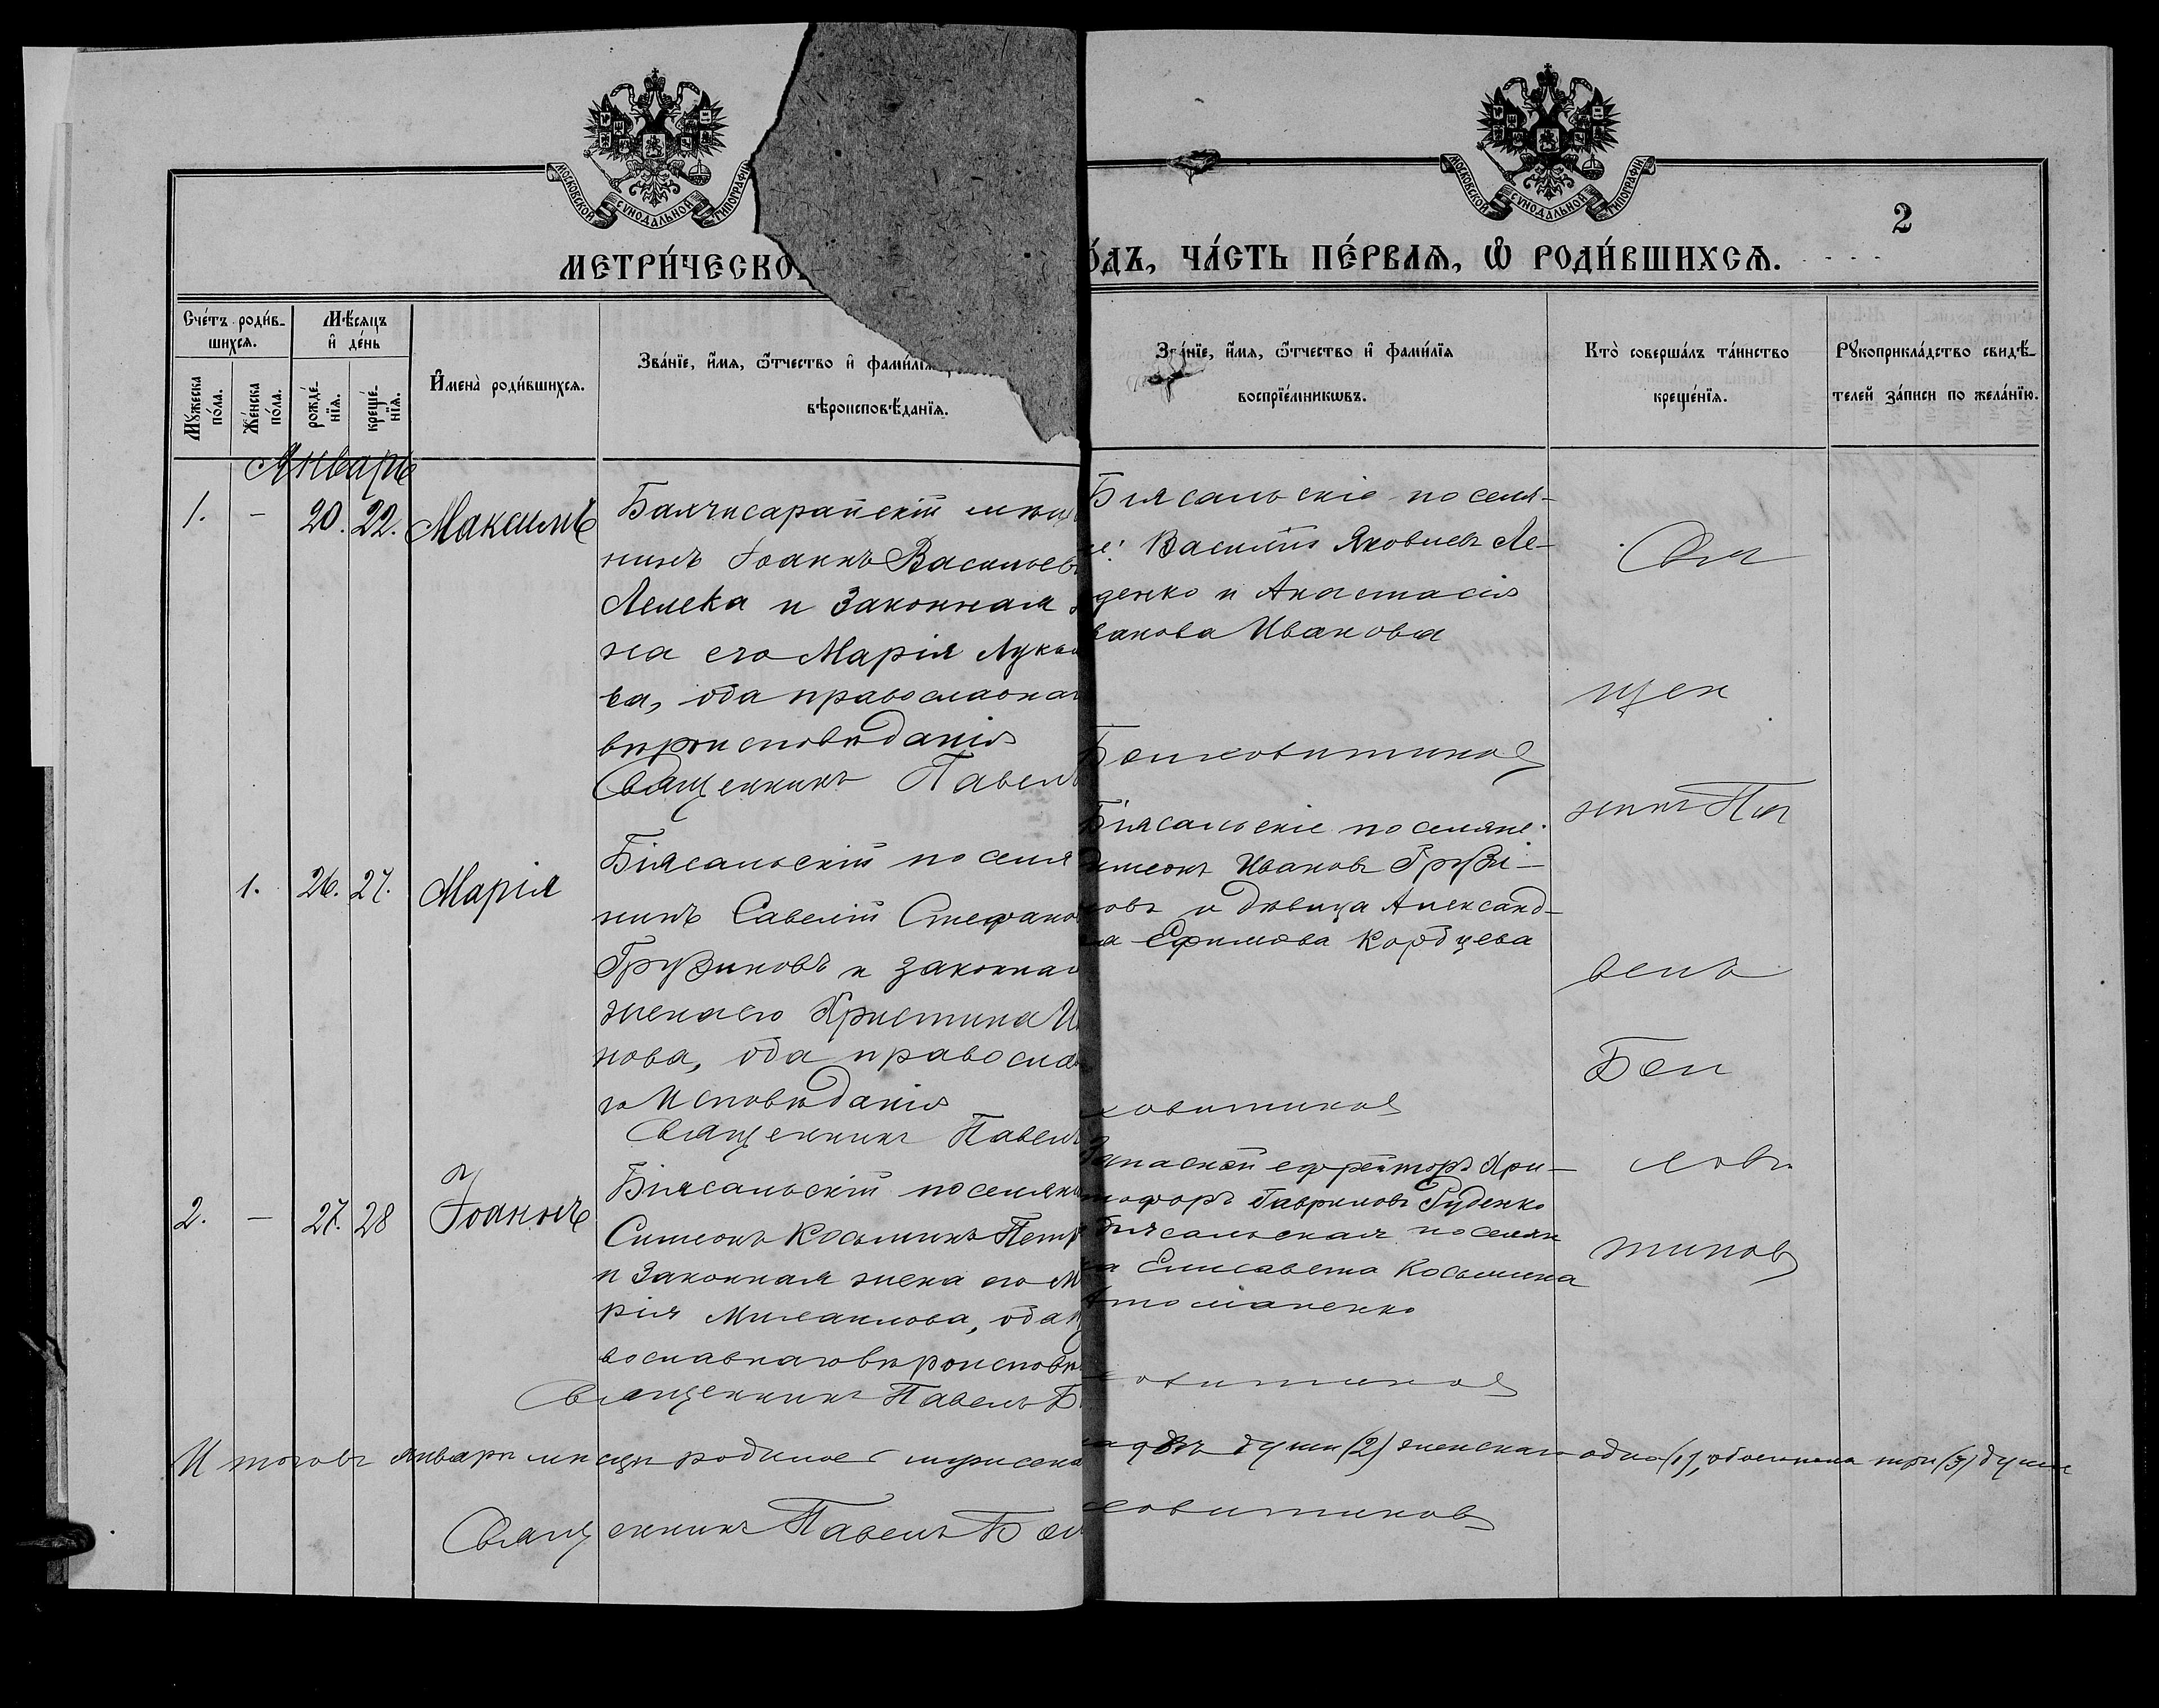 МОСКОВСКОЙ СѴНОДАЛЬНОЙ ТИПОГРАФІИ
МОСКОВСКОЙ СѴНОДАЛЬНОЙ ТИПОГРАФІИ
2
МЕТРИ́ЧЕСКО
О́ДЪ, ЧА́СТЬ ПЕ́РВАѦ, Ѽ РОДИ́ВШИХСѦ.
Сче́тъ роди́в-
шихсѧ.
Мꙋ́жеска по́ла.
Же́нска по́ла.
Мѣ́сяцъ
и҆ де́нь
рожде́-
нїѧ.
креще́-
нїѧ.
И҆мена̀ роди́вшихсѧ.
Зва́нїе, и҆́мѧ, ѻ҆́тчество и҆ фами́лїѧ
вѣроисповѣ́данїѧ.
Зва́нїе, и҆́мѧ, ѻ҆́тчество и҆ фами́лїѧ
воспрїе́мникѡвъ.
Кто̀ соверша́лъ та́инство
креще́нїѧ.
Рꙋкоприкла́дство свидѣ́-
телей за́писи по жела́нїю.
Январь
1. - 20. 22. Максимъ
Бахчисарайскій мѣща
нинъ Іоаннъ Васильев
Лелека и законная
на его Марія Лукья
ва, оба православнаг
вѣроисповѣданія
Священникъ Павелъ
Біясальскіе поселя-
не: Василій Яковлевъ Ле-
денко и Анастасія
ванова Иванова
Белховитинов
Свя
щен
никъ Па
велъ
Бел
хови
тинов
1. 26. 27. Марія
Біясальскій поселя
нинъ Савелій Стефано
Грузиновъ и законная
жена его Христина И
нова, оба правосла
го исповѣданія
Священникъ Павелъ
Біясальскіе поселяне:
Симеонъ Ивановъ Грузи-
новъ и дѣвица Александ-
ра Ефимова
ховитинов
2. - 27. 28 Іоаннъ
Біясальскій поселяни
Симеонъ Косьминъ Петр
и законная жена его М
рія Михаилова, оба п
вославнаго вѣроисповѣ
Священникъ Павелъ Б
Запаской ефрейторъ Хри-
стофоръ Гавриловъ Руденко
Біясальская поселян
ка Елисавета Косьмина
ховитинов
Итого въ январѣ мѣсяцѣ родилось мужеска
два души (2) женскаго одна (1), обоего пола три (3) души
Священникъ Павелъ Бел
ховитиновъ